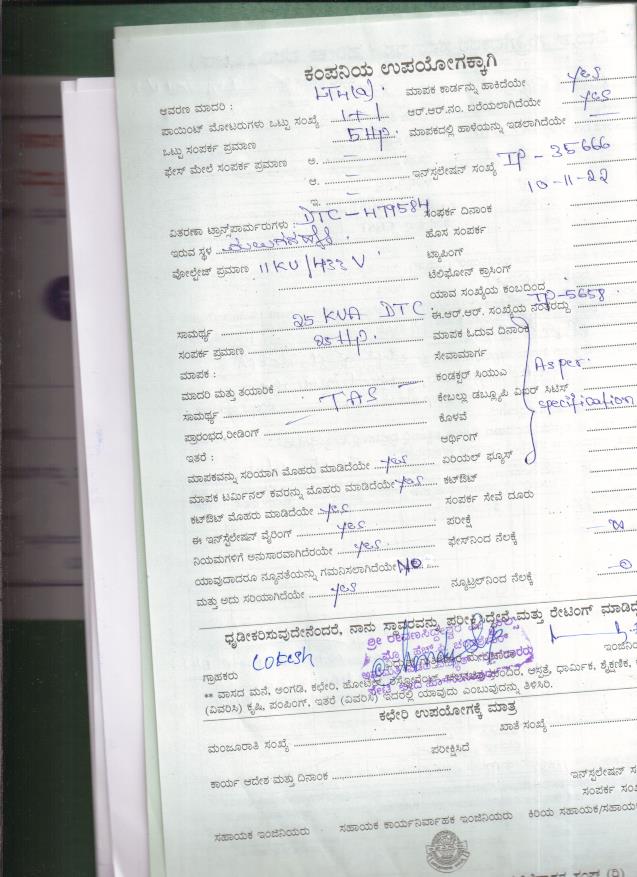 ಕಂಪನಿಯ ಉಪಯೋಗಕ್ಕಾಗಿ
ಆವರಣ ಮಾದರಿ : LT4(a). ಮಾಪಕ ಕಾರ್ಡನ್ನು ಹಾಕಿದೆಯೇ yes
ಪಾಯಿಂಟ್ ಮೋಟರುಗಳು ಒಟ್ಟು ಸಂಖ್ಯೆ 1+1 ಆರ್.ಆರ್.ನಂ. ಬರೆಯಲಾಗಿದೆಯೇ yes
ಒಟ್ಟು ಸಂಪರ್ಕ ಪ್ರಮಾಣ 5Hp. ಮಾಪಕದಲ್ಲಿ ಹಾಳೆಯನ್ನು ಇಡಲಾಗಿದೆಯೇ —
ಫೇಸ್ ಮೇಲೆ ಸಂಪರ್ಕ ಪ್ರಮಾಣ ಅ. – ಇನ್‌ಸ್ಟಲೇಷನ್ ಸಂಖ್ಯೆ IP - 35666
ಆ. – 10-11-22
ಇ. –
ವಿತರಣಾ ಟ್ರಾನ್ಸ್‌ಪಾರ್ಮರುಗಳು : DTC - 479584 ಸಂಪರ್ಕ ದಿನಾಂಕ
ಇರುವ ಸ್ಥಳ ಹೊಸ ಸಂಪರ್ಕ
ವೋಲ್ಟೇಜ್ ಪ್ರಮಾಣ 11KV/433V ಟ್ಯಾಪಿಂಗ್
ಟೆಲಿಫೋನ್ ಕ್ರಾಸಿಂಗ್
ಯಾವ ಸಂಖ್ಯೆಯ ಕಂಬದಿಂದ
ಸಾಮರ್ಥ್ಯ 25 KVA DTC. ಈ.ಆರ್.ಆರ್. ಸಂಖ್ಯೆಯ ನಂತರದ್ದು IP-5658.
ಸಂಪರ್ಕ ಪ್ರಮಾಣ 25Hp. ಮಾಪಕ ಓದುವ ದಿನಾಂಕ
ಮಾಪಕ : ಸೇವಾಮಾರ್ಗ
ಮಾದರಿ ಮತ್ತು ತಯಾರಿಕೆ ಕಂಡಕ್ಟರ್ ಸಿಯುಎ Asper.
ಸಾಮರ್ಥ್ಯ — TAS — ಕೇಬಲ್ಲು ಡಬ್ಲ್ಯೂಪಿ ವಿಐಆರ್ ಸಿಟಿಸ್ specification
ಪ್ರಾರಂಭದ ರೀಡಿಂಗ್ ಕೊಳವೆ
ಇತರೆ : ಅರ್ಥಿಂಗ್
ಮಾಪಕವನ್ನು ಸರಿಯಾಗಿ ಮೊಹರು ಮಾಡಿದೆಯೇ yes ಏರಿಯಲ್ ಫ್ಯೂಸ್
ಮಾಪಕ ಟರ್ಮಿನಲ್ ಕವರನ್ನು ಮೊಹರು ಮಾಡಿದೆಯೇ yes ಕಟ್‌ಔಟ್
ಕಟ್‌ಔಟ್ ಮೊಹರು ಮಾಡಿದೆಯೇ yes ಸಂಪರ್ಕ ಸೇವೆ ದೂರು
ಈ ಇನ್‌ಸ್ಟೆಲೇಷನ್ ವೈರಿಂಗ್ yes ಪರೀಕ್ಷೆ
ನಿಯಮಗಳಿಗೆ ಅನುಸಾರವಾಗಿದೆರಯೇ yes ಫೇಸ್‌ನಿಂದ ನೆಲಕ್ಕೆ
ಯಾವುದಾದರೂ ನ್ಯೂನತೆಯನ್ನು ಗಮನಿಸಲಾಗಿದೆಯೇ NO
ಮತ್ತು ಅದು ಸರಿಯಾಗಿದೆಯೇ yes ನ್ಯೂಟ್ರಲ್‌ನಿಂದ ನೆಲಕ್ಕೆ
ಧೃಡೀಕರಿಸುವುದೇನೆಂದರೆ, ನಾನು ಸ್ಥಾವರವನ್ನು ಪರೀಕ್ಷಿಸಿದ್ದೇನೆ ಮತ್ತು ರೇಟಿಂಗ್ ಮಾಡಿದೆ
ಗ್ರಾಹಕರು Lokesh
** ವಾಸದ ಮನೆ, ಅಂಗಡಿ, ಕಛೇರಿ, ಆಸ್ಪತ್ರೆ, ಧಾರ್ಮಿಕ, ಶೈಕ್ಷಣಿಕ,
(ವಿವರಿಸಿ) ಕೃಷಿ, ಪಂಪಿಂಗ್, ಇತರೆ (ವಿವರಿಸಿ) ಇದರಲ್ಲಿ ಯಾವುದು ಎಂಬುವುದನ್ನು ತಿಳಿಸಿರಿ.
ಕಛೇರಿ ಉಪಯೋಗಕ್ಕೆ ಮಾತ್ರ
ಮಂಜೂರಾತಿ ಸಂಖ್ಯೆ ಖಾತೆ ಸಂಖ್ಯೆ
ಪರೀಕ್ಷಿಸಿದೆ
ಕಾರ್ಯ ಆದೇಶ ಮತ್ತು ದಿನಾಂಕ ಇನ್‌ಸ್ಪಲೇಷನ್ ಸ
ಸಂಪರ್ಕ ಸಂಖ
ಸಹಾಯಕ ಇಂಜಿನಿಯರು ಸಹಾಯಕ ಕಾರ್ಯನಿರ್ವಾಹಕ ಇಂಜಿನಿಯರು ಕಿರಿಯ ಸಹಾಯಕ/ಸಹಾಯ